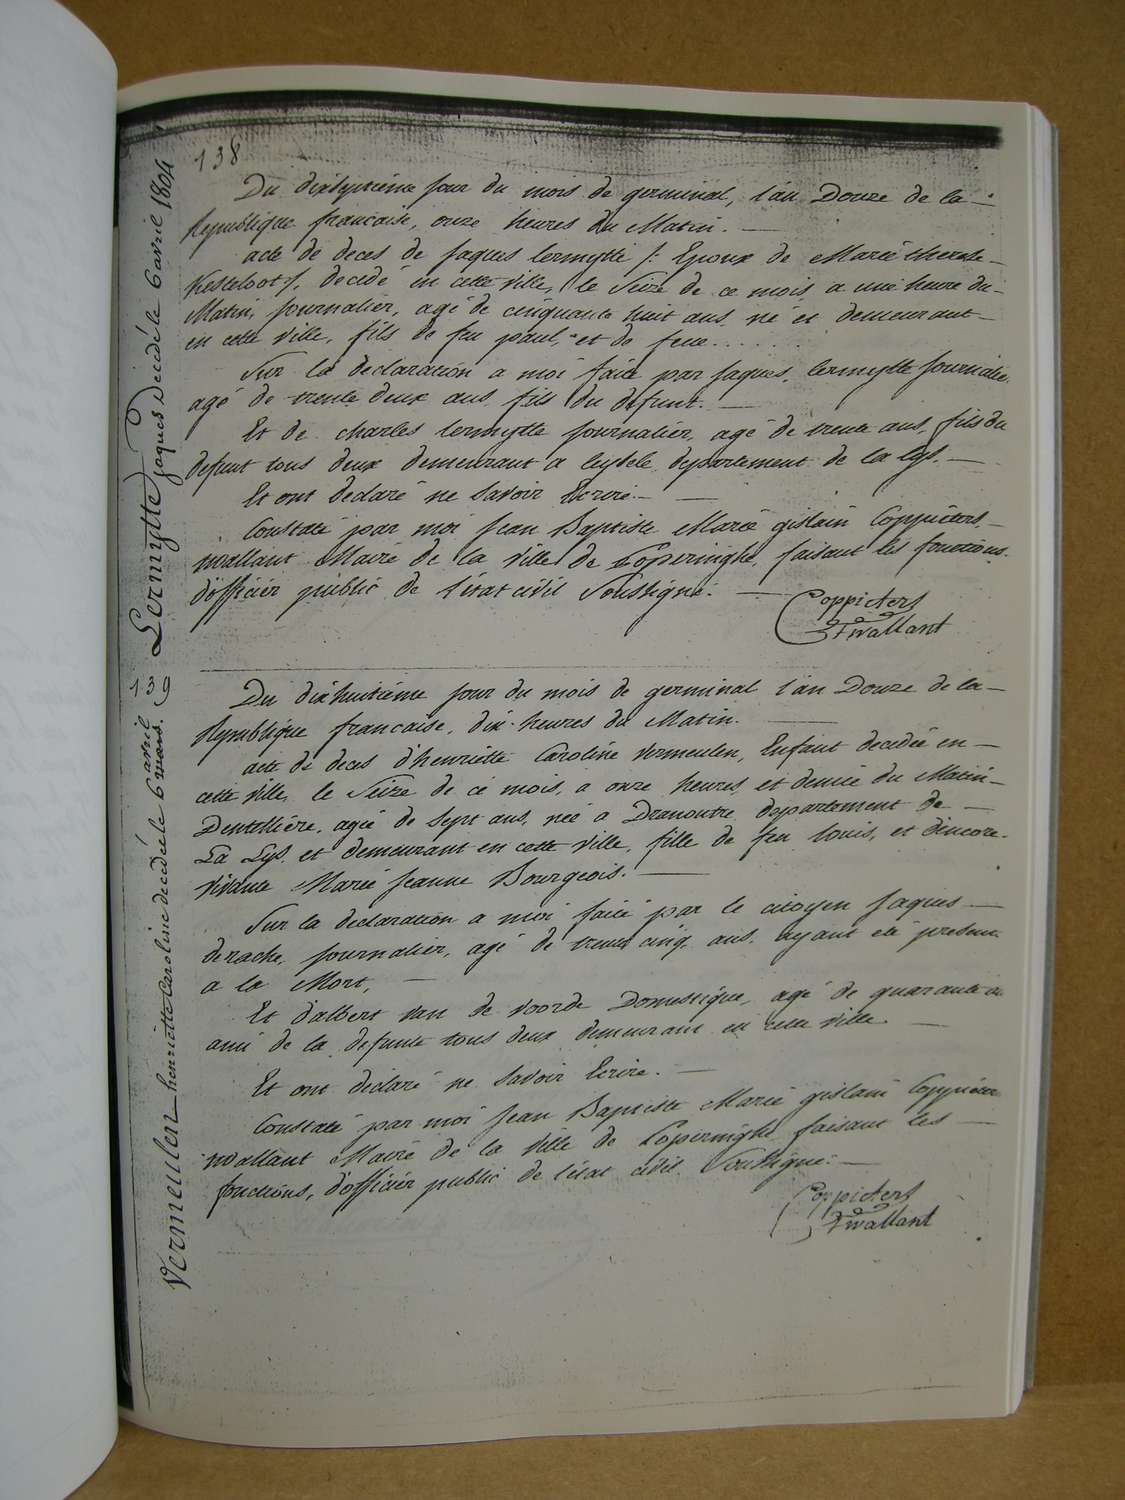 138
Du dixseptième jour du mois de germinal, l'an Douze de la
Republique française, onze heures du Matin.
acte de deces de jaques lermytte /: Epoux de Marie therese
Kesteloot /, decedé en cette ville, le Seize de ce mois, a une heure du
Matin, journalier, agé de cinquante huit ans, né et demeurant
en cette ville, fils de feu paul, et de feue......
Sur la déclaration a moi faite par jaques lermytte journalier
agé de trente deux ans, fils du defunt.
Et de charles lermytte journalier, agé de trente ans, fils du
defunt tous deux demeurant a leysele, departement de la lys.
Et ont declaré ne savoir Ecrire.
Constaté par moi Jean Baptiste Marie gislain Coppieters
wallant Maire de la ville de Poperinghe, faisant les fonctions
d'officier public de l'état civil Soussigné.
Coppieters
Twallant
Lermytte jaques decédé le 6 avril 1804
139
Du dixhuitième jour du mois de germinal l'an Douze de la
Republique française, dix heures du Matin.
acte de deces d'henriette Caroline vermeulen, Enfant decedée en
cette ville, le Seize de ce mois, a onze heures et demie du Matin
Dentellière, agée de sept ans, née à Dranoutre departement de
La Lys, et demeurant en cette ville, fille de feu louis, et d'encore
vivante Marie jeanne Bourgeois.
Sur la déclaration a moi faite par le citoyen jaques
derache, journalier, agé de trente cinq ans, ayant été present
a la Mort,
Et d'albert van de voorde Domestique, agé de quarante
ami de la defunte tous deux demeurant en cette ville
Et ont declaré ne savoir Ecrire.
Constaté par moi Jean Baptiste Marie gislain Coppieters
wallant Maire de la ville de Poperinghe faisant les
fonctions, d'officier public de l'état civil Soussigné.
Coppieters
Twallant
Vermeulen henriette Caroline decedée le 6 avril
mars.